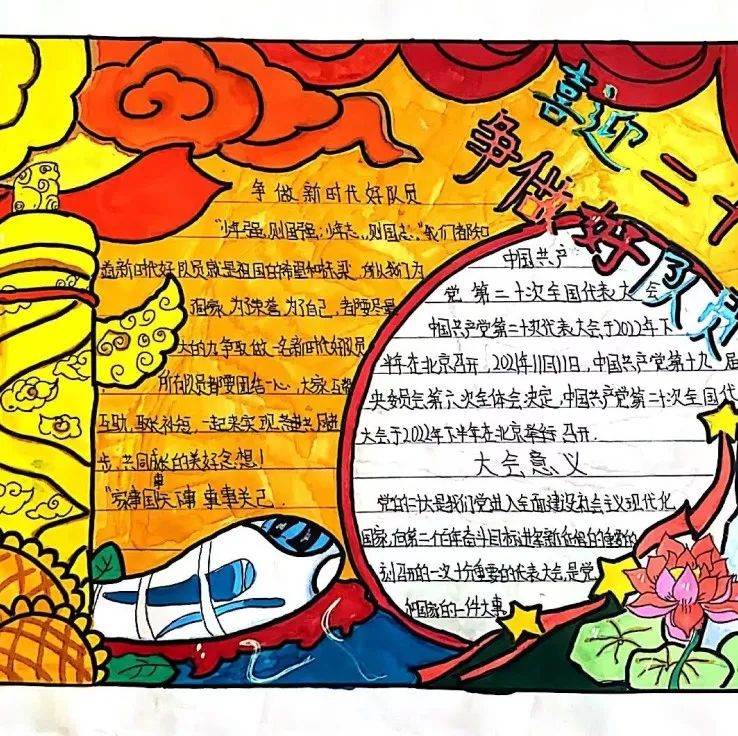 喜迎二十
争做好队员
争做新时代好队员
"少年强,则国强;少年志,则国志。"我们都知
道新时代好队员就是祖国的希望和未来,所以我们为
国家,为了荣誉,为了自己,都要尽最
大的力争取做一名新时代好队员。
所有队员都要团结一心,大家互帮
互助,取长补短,一起来实现共同进
步,共同成长的美好念想!
"家事国事天下事 事事关己
中国共产
党 第二十次全国代表大会
中国共产党第二十次代表大会于2022年下
半年在北京召开,2021年11月11日,中国共产党第十九届
央委员会第六次全体会决定,中国共产党第二十次全国代
大会于2022年下半年在北京举行召开.
大会意义
党的二十大是我们党进入全面建设社会主义现代化
国家,向第二个百年奋斗目标进军新征程的重要的
刻召开的一次十分重要的代表大会,是党
和国家的一件大事.